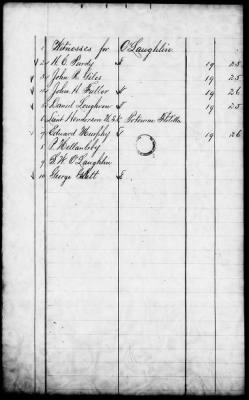 1 Witnesses for O'Laughlin
2 H. C. Purdy 19 25
3 John R. Giles 19 25
John H. Fuller 19 26
Daniel Loughran 19 25
Lieut Henderson U.S.N. Potomac Flotilla
7 Edward Murphy 19 26
8 P. H.
9 P. W. O'Laughlin
10 George